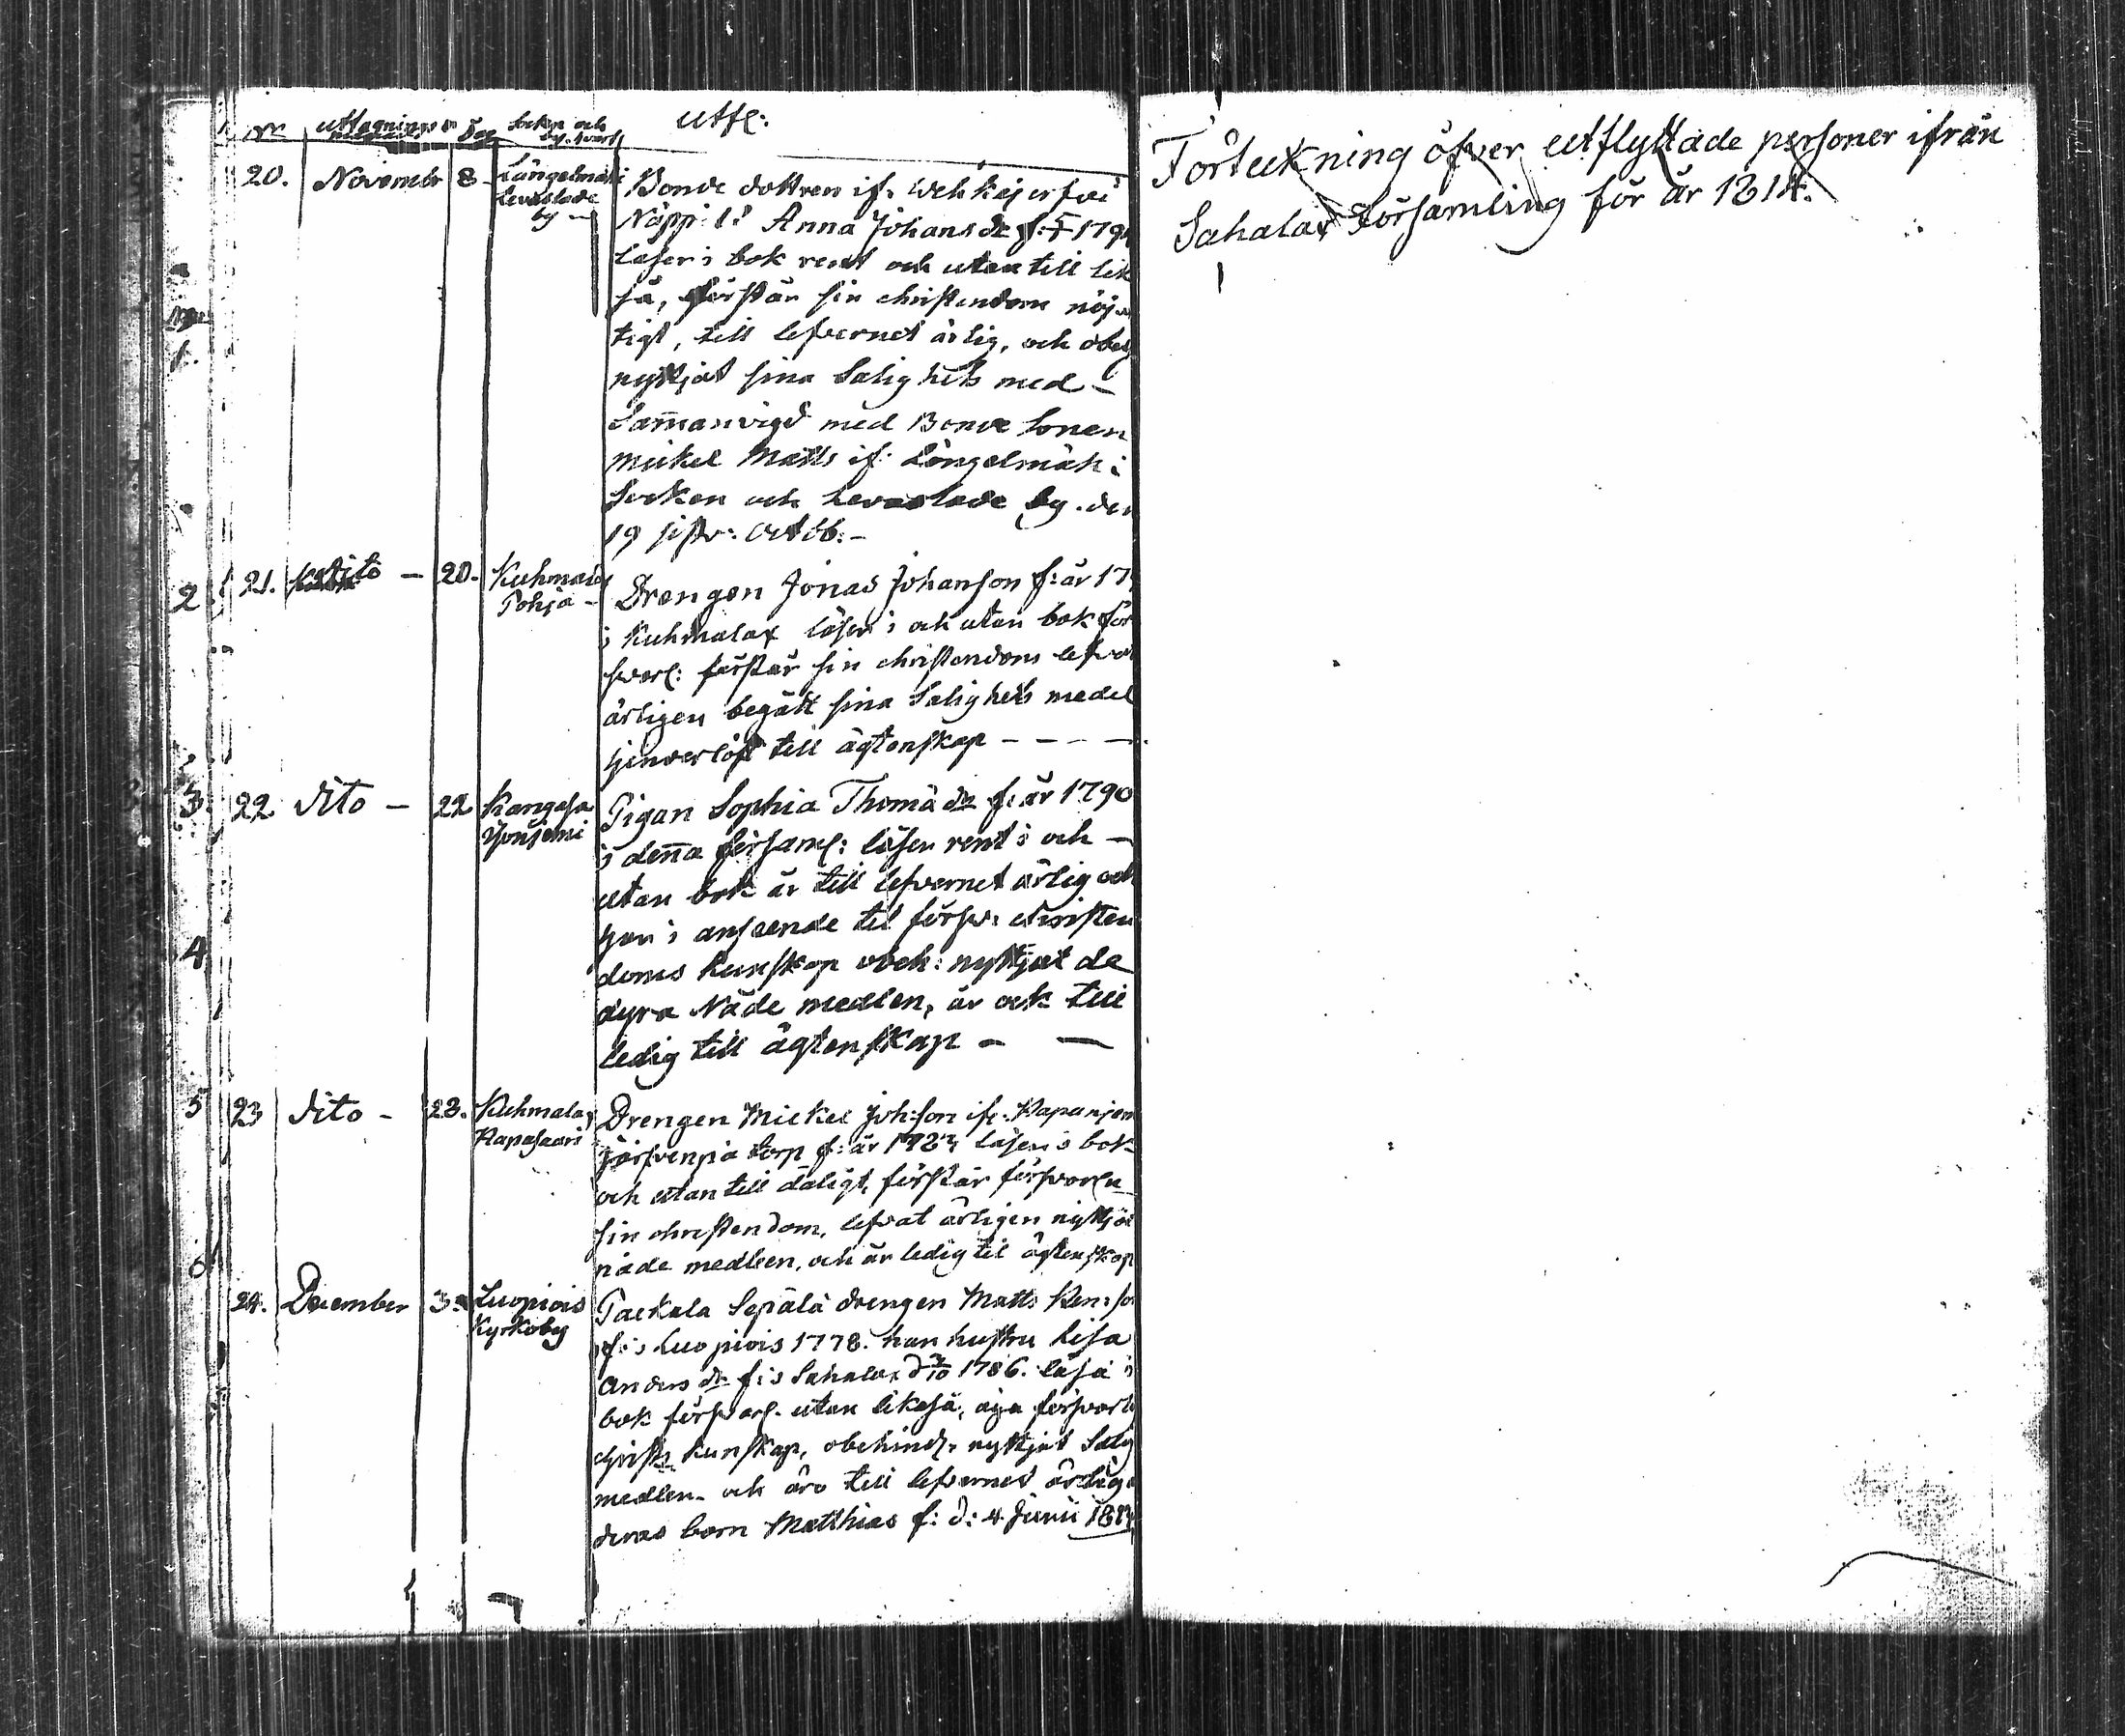 Nr uttagnings Dag Sokn och by. hvart utfl:
20. Novembr 8 Längelmäki Levaslade by
Bonde dottren if. Wehkajerfvi
Näppilä Anna Johans dr f. 179
läser i bok rent och utan till lik
så, förstår sin christendom nöj
tigt, till lefvernet ärlig, och obeh
nyttjat sina Salighets med
Sammanvigd med Bonde Sonen
Mickel Matts if. Längelmäki
Socken och Levaslade by. den
19 sistv: Octob:
21. dito 20. Kuhmalax Pohja
Drengen Jonas Johanson f: år 17
i Kuhmalax läser i och utan bok för
svarl: förstår sin christendom lefvat
ärligen begått sina Salighets medel
till ägtenskap
22 dito 22 Kangasa
Pigan Sophia Thomä dr f: år 1790
i denna församl: läser rent i och
utan bok är till lefvernet ärlig och
har i anseende til försv: christen
doms kunskap obeh: nyttjat de
dyra Nåde medlen, är ock till
ledig till ägtenskap
23 dito 23. Kuhmalax Hapasaari
Drengen Mickel Joh:son if:
Järfvenpä torp f: år läser i bok
och utan till dåligt, förstår försvarln
sin christendom, lefvat ärligen nyttjat
nåde medlen, och är ledig til ägtenskap
24. December 3 Luopiois Kyrkoby
Packala Sepälä drengen Matts Hen:so
f: i Luopiois 1778. han hustru Lisa
Anders dr f: i Sahalax d 1786. läsa i
bok försvarl. utan likaså, äga försvarl
christ: kunskap, obehindr. nyttjat Salig
medlen och äro till lefvernet ärlig
deras barn Matthias f: d: 4 Junii
2
3
4
5
6
Förteckning öfver utflyttade personer ifrån
Sahalax Församling för år 1814.